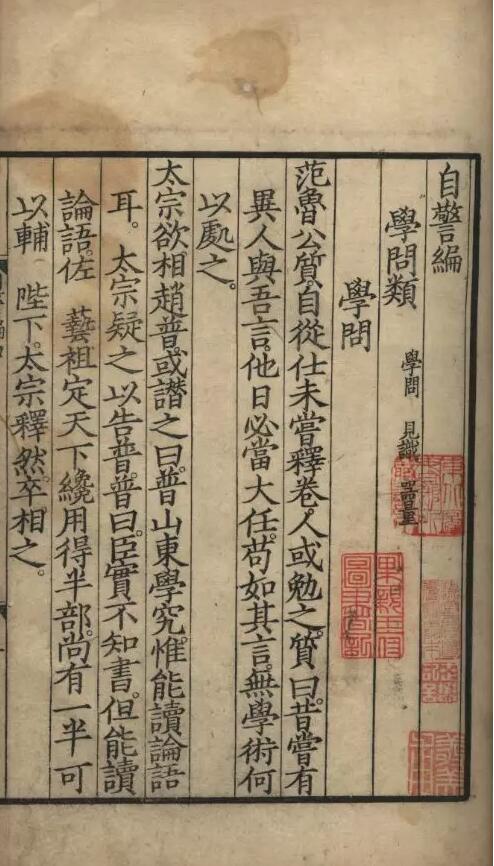 自警編
學問類 學問 見識 器量
學問
范魯公質。自從仕未嘗釋卷。人或勉之。質曰。昔嘗有
異人與吾言。他日必當大任。苟如其言。無學術何
以處之。
太宗欲相趙普。或譖之曰。普山東學究。惟能讀論語
耳。 太宗疑之。以告普。普曰。臣實不知書。但能讀
論語。佐 藝祖定天下。纔用得半部。尚有一半。可
以輔 陛下。太宗釋然。卒相之。